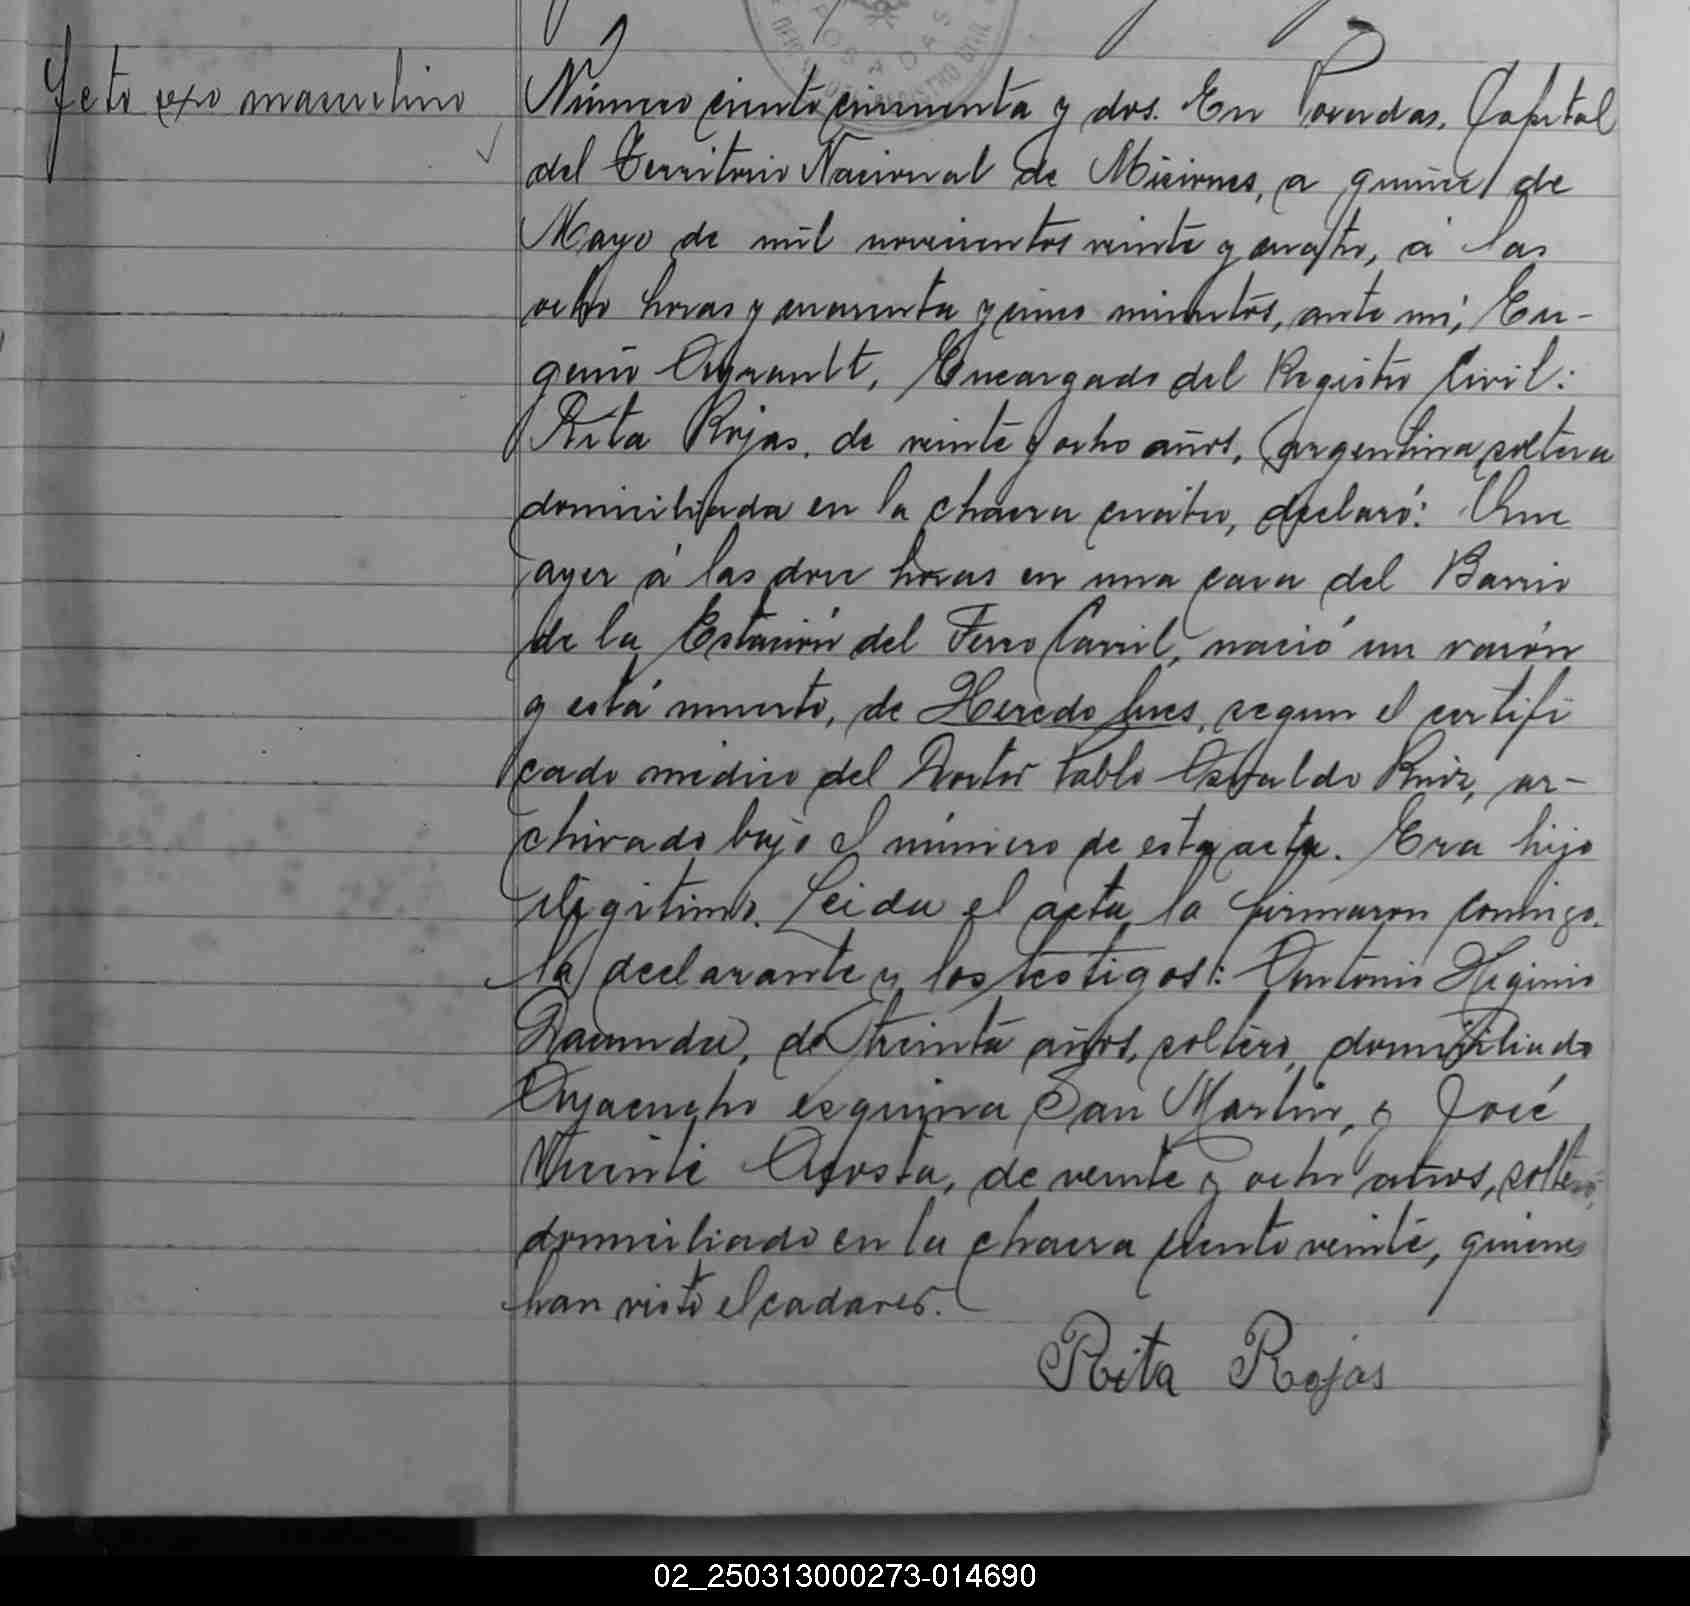 Feto sexo masculino
Número ciento cincuenta y dos. En Posadas, Capital
del Territorio Nacional de Misiones, a quince de
Mayo de mil novecientos veinte y cuatro, á las
ocho horas y cuarenta y cinco minutos, ante mí, Eu-
genio Ayrault, Encargado del Registro Civil:
Rita Rojas, de veinte y ocho años, argentina soltera
domiciliada en la chacra cuatro, declaró: Que
ayer á las doce horas en una casa del Barrio
de la Estación del Ferro Carril, nació un varón
y está muerto, de Heredo lues, segun el certifi
cado médico del Doctor Pablo Osvaldo Ruiz, ar-
chivado bajo el número de esta acta. Era hijo
ilegítimo. Leida el acta la firmaron conmigo
la declarante y los testigos: Antonio Higinio
de treinta años, soltero, domiciliado
Ayacucho esquina San Martin, y José
Vicente Acosta, de veinte y ocho años, soltero,
domiciliado en la chacra ciento veinte, quienes
han visto el cadaver.
Rita Rojas
02_250313000273-014690